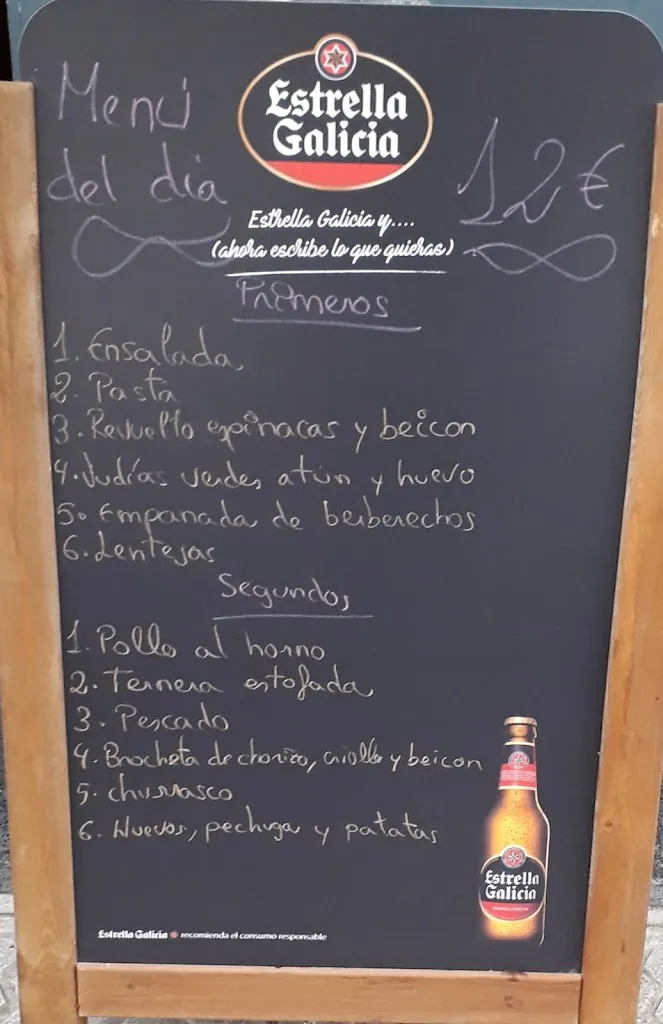 Menú
del dia
Estrella
Galicia
12€
Estrella Galicia y....
(ahora escribe lo que quieras)
Primeros
1. Ensalada
2. Pasta
3. Revuelto espinacas y beicon
4. Judías verdes, atún y huevo
5. Empanada de berberechos
6. Lentejas
Segundos
1. Pollo al horno
2. Ternera estofada
3. Pescado
4. Brocheta de chorizo, criollo y beicon
5. churrasco
6. Huevos, pechuga y patatas
Estrella
Galicia
Estrella Galicia recomienda el consumo responsable